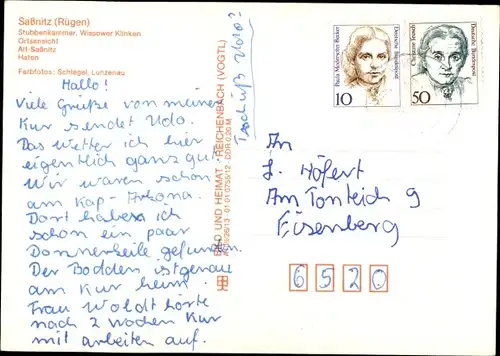 Saßnitz (Rügen)
Stubbenkammer, Wissower Klinken
Ortsansicht
Alt-Saßnitz
Hafen
Farbfotos: Schlegel, Lunzenau
Hallo!
Viele Grüße von meiner
Kur sendet Udo.
Das Wetter ich hier
eigentlich ganz gut.
Wir waren schon
am Kap-Arkona.
Dort habe ich
schon ein paar
Donnerkeile gefunden.
Der Bodden ist genau
am Kur heim.
Frau Woldt hörte
nach 2 wochen Kur
mit arbeiten auf.
Tschüß Udo?
BILD UND HEIMAT REICHENBACH (VOGTL)
01 01 0755/12 DDR 0,20 M
Paula Modersohn-Becker
Deutsche Bundespost
10
Christine Teusch
Deutsche Bundespost
50
An
Höfert
Am Tonteich 9
Eisenberg
6520